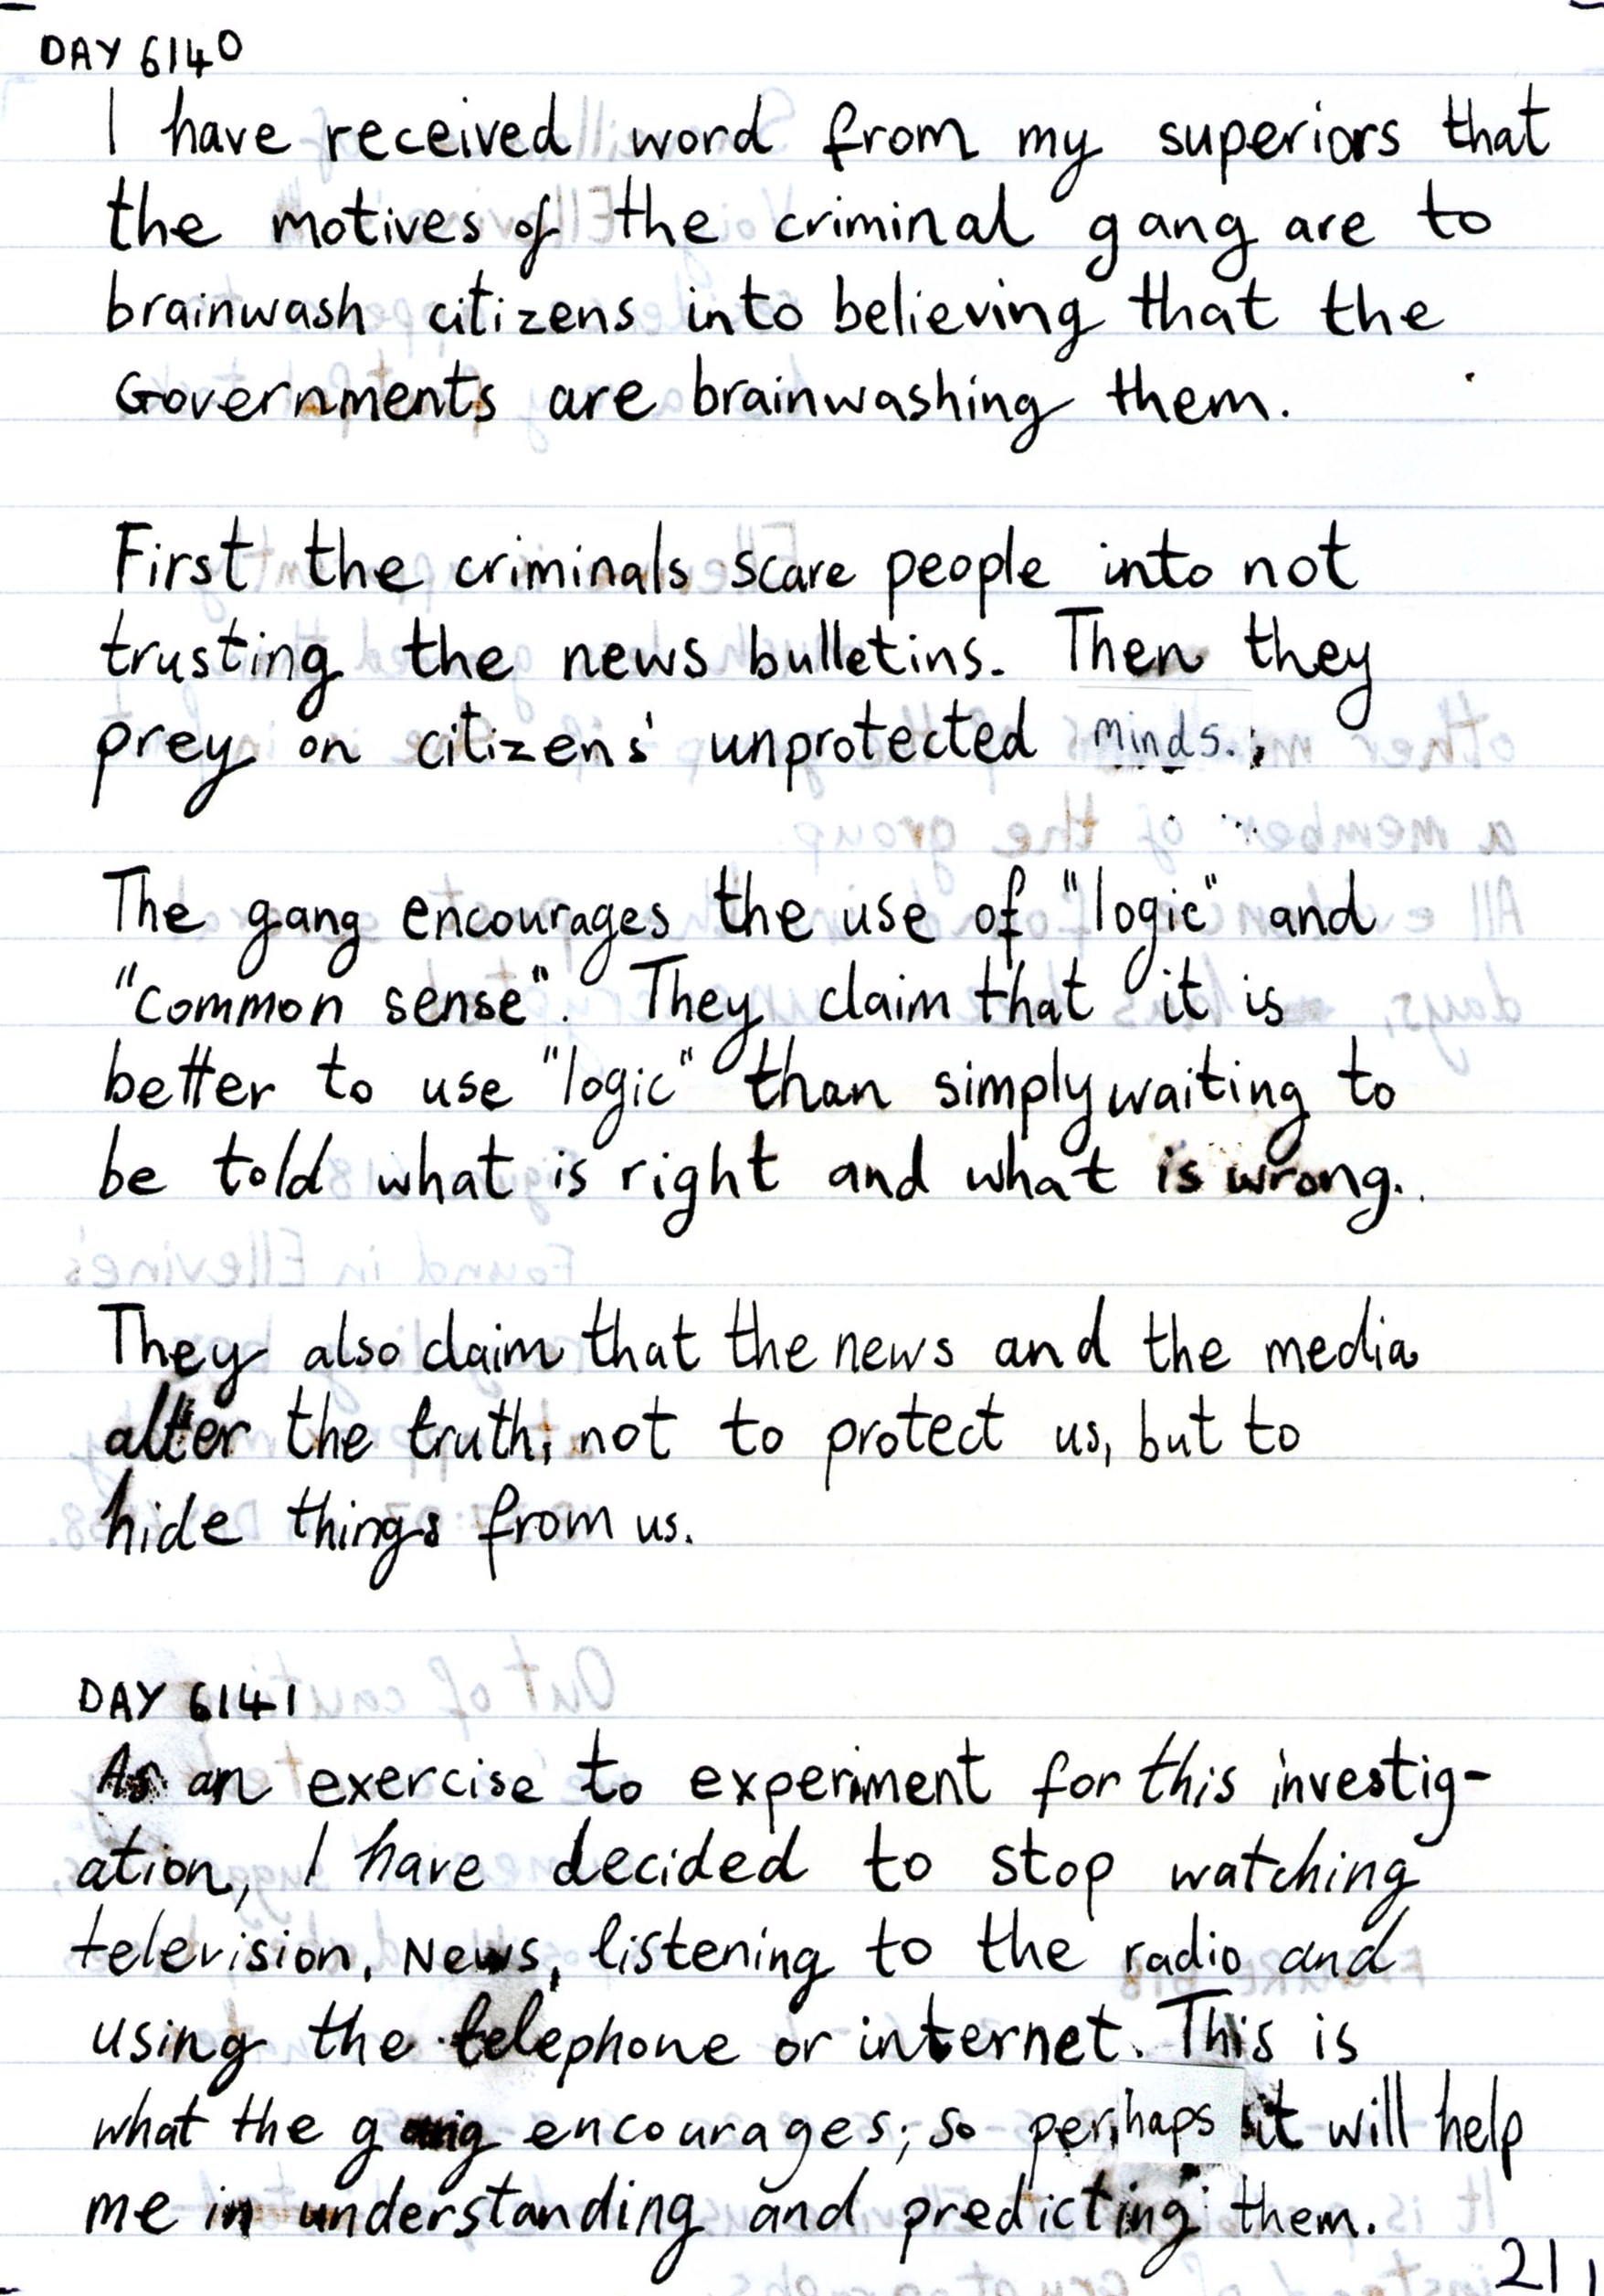 DAY 6140
I have received word from my superiors that
the motives of the criminal gang are to
brainwash citizens into believing that the
Governments are brainwashing them.
First the criminals scare people into not
trusting the news bulletins. Then they
prey on citizens' unprotected minds.
The gang encourages the use of "logic" and
"common sense". They claim that it is
better to use "logic" than simply waiting to
be told what is right and what is wrong.
They also claim that the news and the media
alter the truth, not to protect us, but to
hide things from us.
DAY 6141
As an exercise to experiment for this investig-
ation, I have decided to stop watching
television, News, listening to the radio and
using the telephone or internet. This is
what the gang encourages; so perhaps it will help
me in understanding and predicting them.